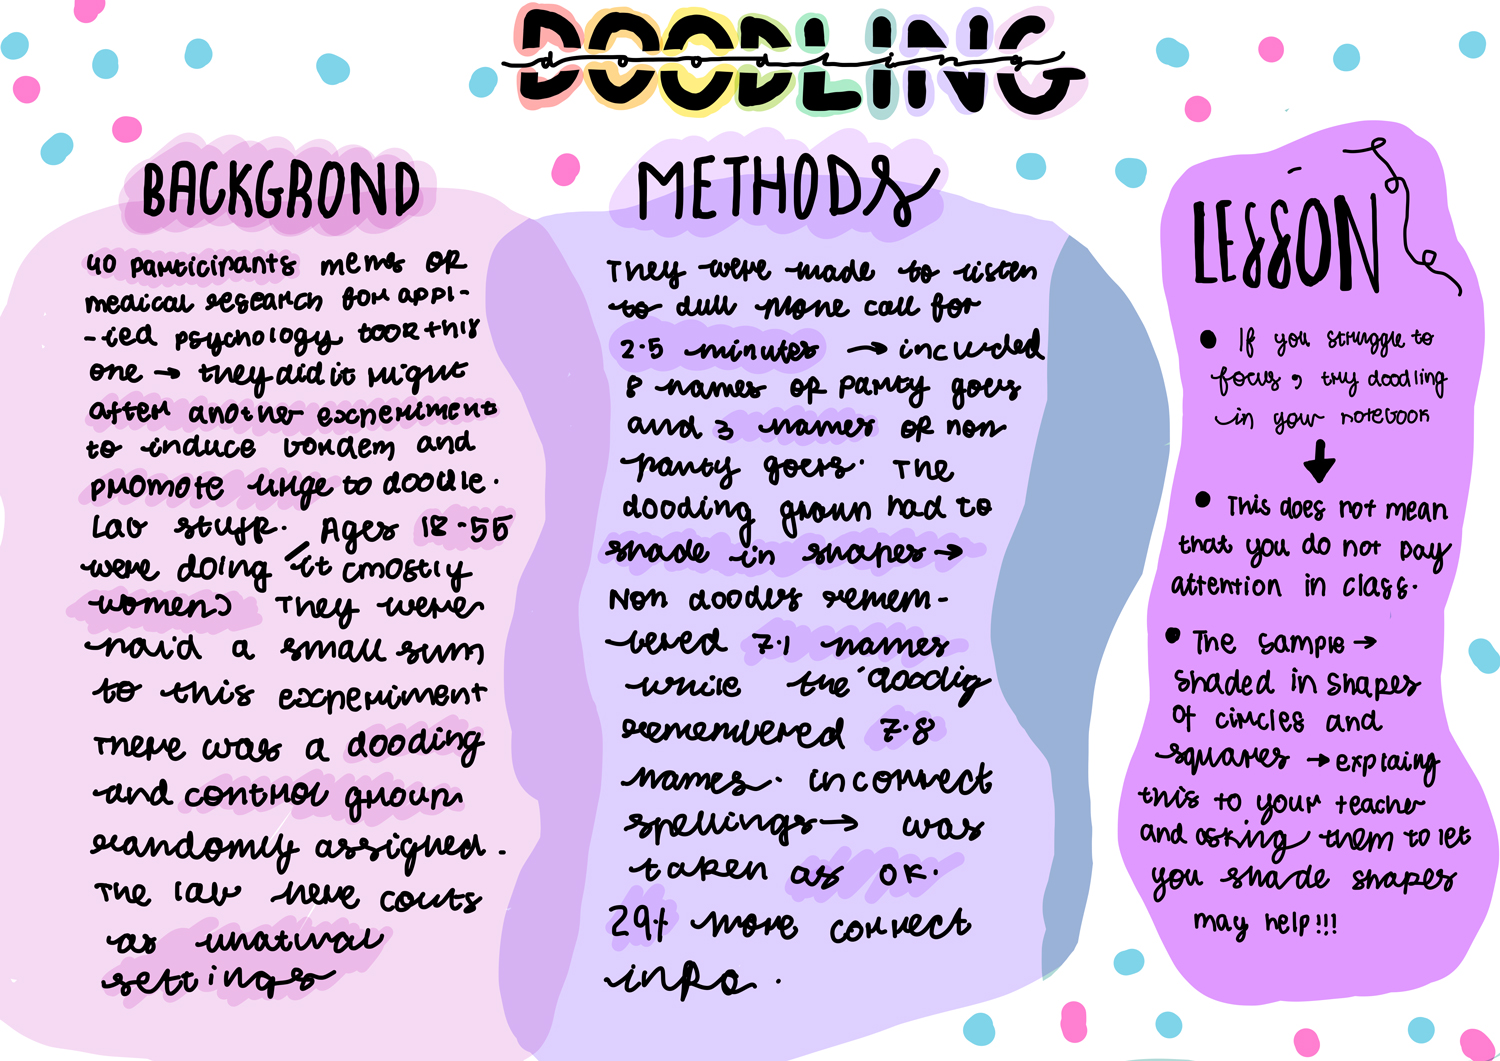 DOODLING
doodling
BACKGROND
40 participants mems OR
medical research for appl-
-ied psychology took this
one → they did it right
after another experiment
to induce bordem and
promote urge to doodle.
Lab stuff. Ages 18-55
were doing it (mostly
women) They were
paid a small sum
to this experiment
There was a dooding
and control group
randomly assigned.
The lab here couts
as unatural
settings
METHODS
They were made to listen
to dull phone call for
2.5 minutes → included
8 names of party goers
and 3 names of non
party goers. The
dooding group had to
shade in shapes →
Non doodles remem-
bered 7.1 names
while the doodig
remembered 7.8
names. incorrect
spellings → was
taken as ok.
29% more correct
info.
LESSON
• If you struggle to
focus, try doodling
in your notebook
↓
• This does not mean
that you do not pay
attention in class.
• The sample →
shaded in shapes
of circles and
squares → explaing
this to your teacher
and asking them to let
you shade shapes
may help!!!